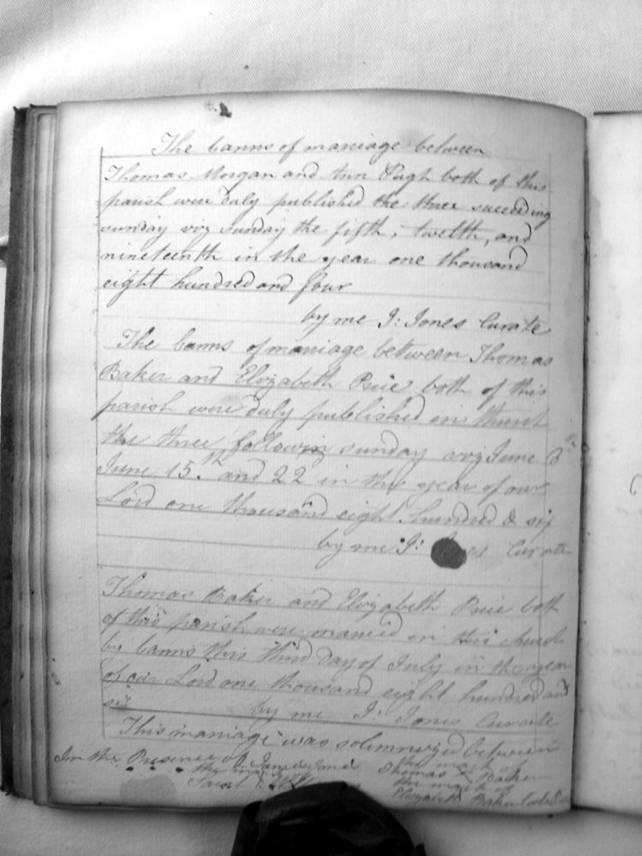 The banns of marriage between
Thomas Morgan and Ann Pugh both of this
parish were duly published the three succeeding
sunday viz sunday the fifth, twelth, and
nineteenth in the year one thousand
eight hundred and four
by me J: Jones Curate
The banns of marriage between Thomas
Baker and Elizabeth Price both of this
parish were duly published in
the three following sunday viz June 8
June 15th and 22 in the year of our
Lord one thousand eight hundred & six
by me J: Curate
Thomas Baker and Elizabeth Price both
of this parish were married in this church
by banns this Third day of July in the year
of our Lord one thousand eight hundred and
six by me J: Jones Curate
This marriage was solemnized between
In the Presence of the mark of
Thomas X Baker
the mark of
Elizabeth Baker